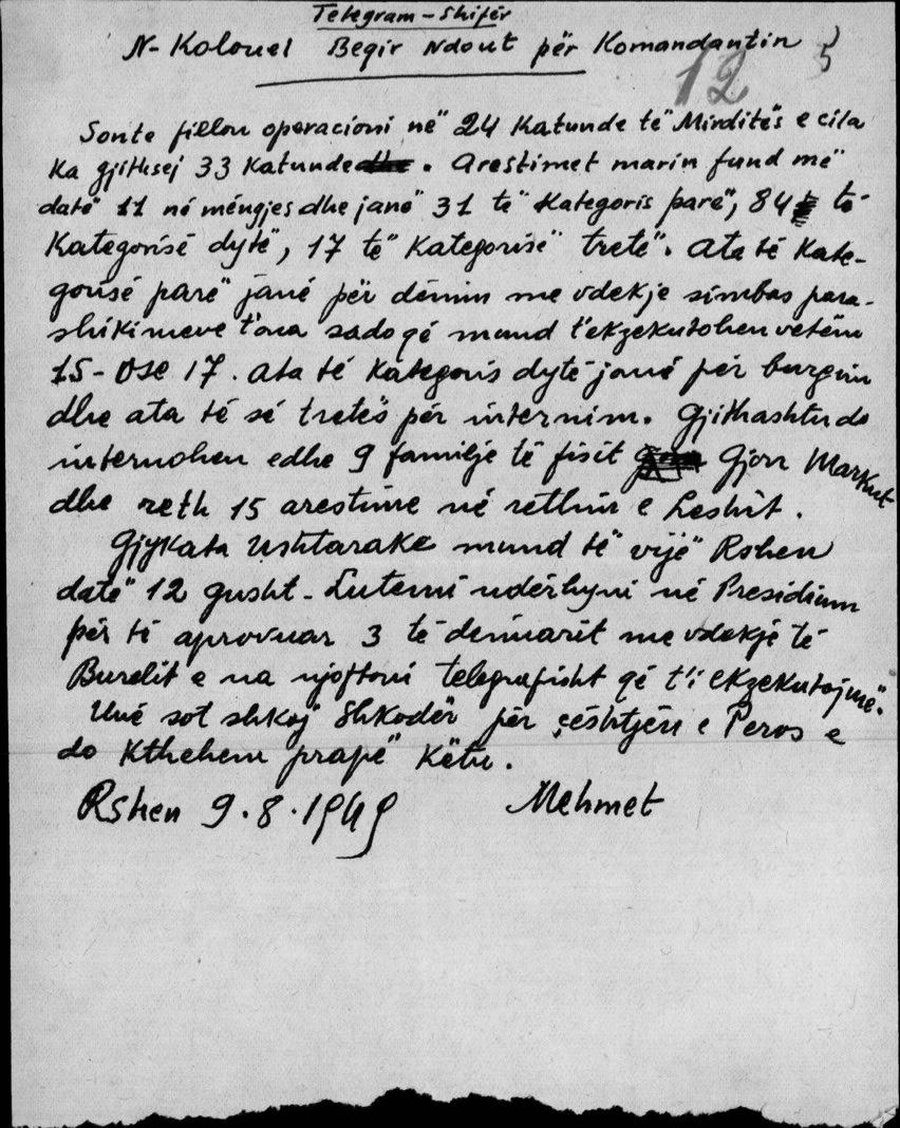 Telegram - Shifër
N-Kolonel Beqir Ndout për Komandantin
5
12
Sonte fillon operacioni në 24 Katunde të Mirditës e cila
ka gjithsej 33 Katunde. Arestimet marin fund më
datë 11 në mëngjes dhe janë 31 të Kategoris parë, 84 të
Kategorisë dytë, 17 të Kategorisë tretë. Ata të Kate-
gorisë parë janë për dënim me vdekje simbas para-
shikimeve t'ona sado që mund t'ekzekutohen vetëm
15 - ose 17. Ata të Kategoris dytë janë për burgim
dhe ata të së tretës për internim. Gjithashtu do
internohen edhe 9 familje të fisit Gjon Markut
dhe reth 15 arestime në rethin e Leshit.
Gjykata Ushtarake mund të vijë Rshen
datë 12 gusht - Lutemi ndërhyni në Presidium
për të aprovuar 3 të denuarit me vdekje të
Burelit e na njoftoni telegrafisht që t'i ekzekutojmë.
Unë sot shkoj Shkodër për çështjën e Peros e
do Kthehem prapë Këtu.
Rshen 9.8.1949 Mehmet